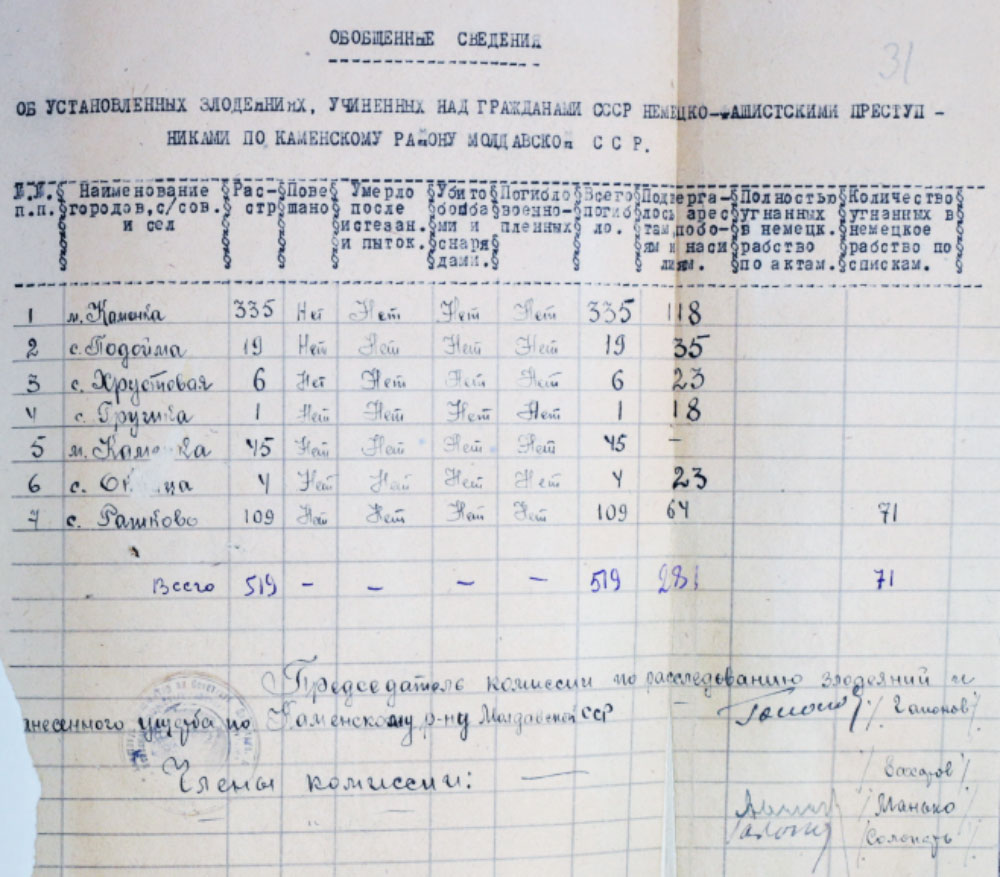 31
ОБОБЩЕННЫЕ СВЕДЕНИЯ
ОБ УСТАНОВЛЕННЫХ ЗЛОДЕЯНИЯХ, УЧИНЕННЫХ НАД ГРАЖДАНАМИ СССР НЕМЕЦКО-ФАШИСТСКИМИ ПРЕСТУП -
НИКАМИ ПО КАМЕНСКОМУ РАЙОНУ МОЛДАВСКОЙ С С Р.
№.№. п.п. Наименование городов,с/сов. и сел Рас-стр Пове шано Умерло после истезан. и пыток. Убито бомба ми и снаря дами. Погибло военно-пленных Всего погиб ло. Подверга-лось арес там,побо-ям и наси лиям. Полностью угнанных в немецк. рабство по актам. Количество угнанных в немецкое рабство по спискам.
1 м. Каменка 335 Нет Нет Нет Нет 335 118
2 с. Подойма 19 Нет Нет Нет Нет 19 35
3 с. Хрустовая 6 Нет Нет Нет Нет 6 23
4 с. 1 Нет Нет Нет Нет 1 18
5 м. Каменка 45 Нет Нет Нет Нет 45 -
6 с. 4 Нет Нет Нет Нет 4 23
7 с. Рашково 109 Нет Нет Нет Нет 109 64 71
Всего 519 - - - - 519 281 71
Председатель комиссии по расследованию злодеяний и
анесенного ущерба по Каменскому р-ну Молдавской ССР - /Гапонов/
Члены комиссии: —
/Захаров/
/Манько/